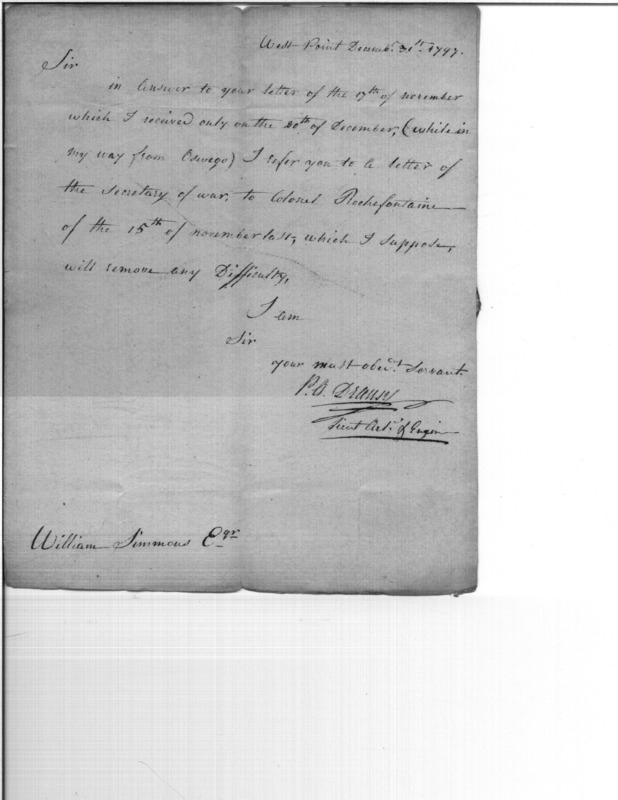 West Point Decemb. 31st. 1797.
Sir
in Answer to your letter of the 17th of november
which I recived only on the 20th of December, (while in
my way from Oswego) I refer you to a letter of
the Secretary of war, to Colonel Rochefontaine
of the 15th of november last, which I suppose,
will remove any Difficulty,
I am
Sir
your must obed.t Servant.
P. A. Dransy
Lieut Art.y & Engin
William Simmons Eqr